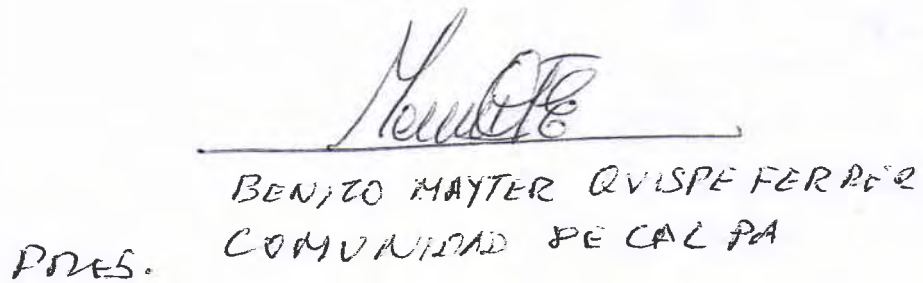 BENITO MAYTER QUISPE FERRER
PRES. COMUNIDAD DE CALPA